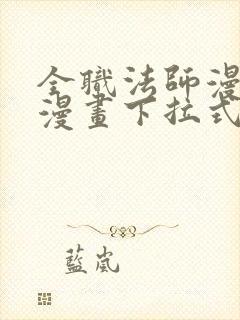 全職法師漫
漫畫下拉式
藍嵐